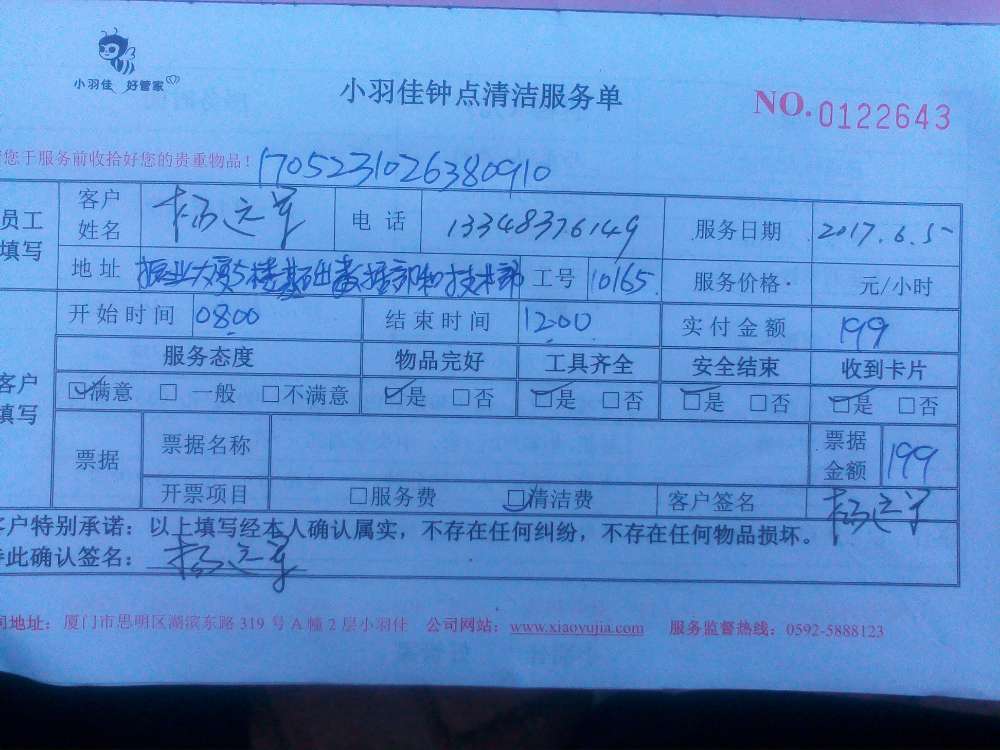 小羽佳 好管家
小羽佳钟点清洁服务单
NO.0122643
您于服务前收拾好您的贵重物品！
1705231026380910
员工填写
客户姓名 杨之军 电话 13348376149 服务日期 2017.6.5
地址 振业大厦5楼基础数据部和技术部 工号 10165 服务价格 元/小时
开始时间 0800 结束时间 1200 实付金额 199
客户填写
服务态度 物品完好 工具齐全 安全结束 收到卡片
☑满意 □一般 □不满意 ☑是 □否 ☑是 □否 ☑是 □否 ☑是 □否
票据 票据名称 票据金额 199
开票项目 □服务费 ☑清洁费 客户签名
客户特别承诺：以上填写经本人确认属实，不存在任何纠纷，不存在任何物品损坏。
此确认签名：
地址：厦门市思明区湖滨东路 319 号 A 幢 2 层小羽佳 公司网站：www.xiaoyujia.com 服务监督热线：0592-5888123